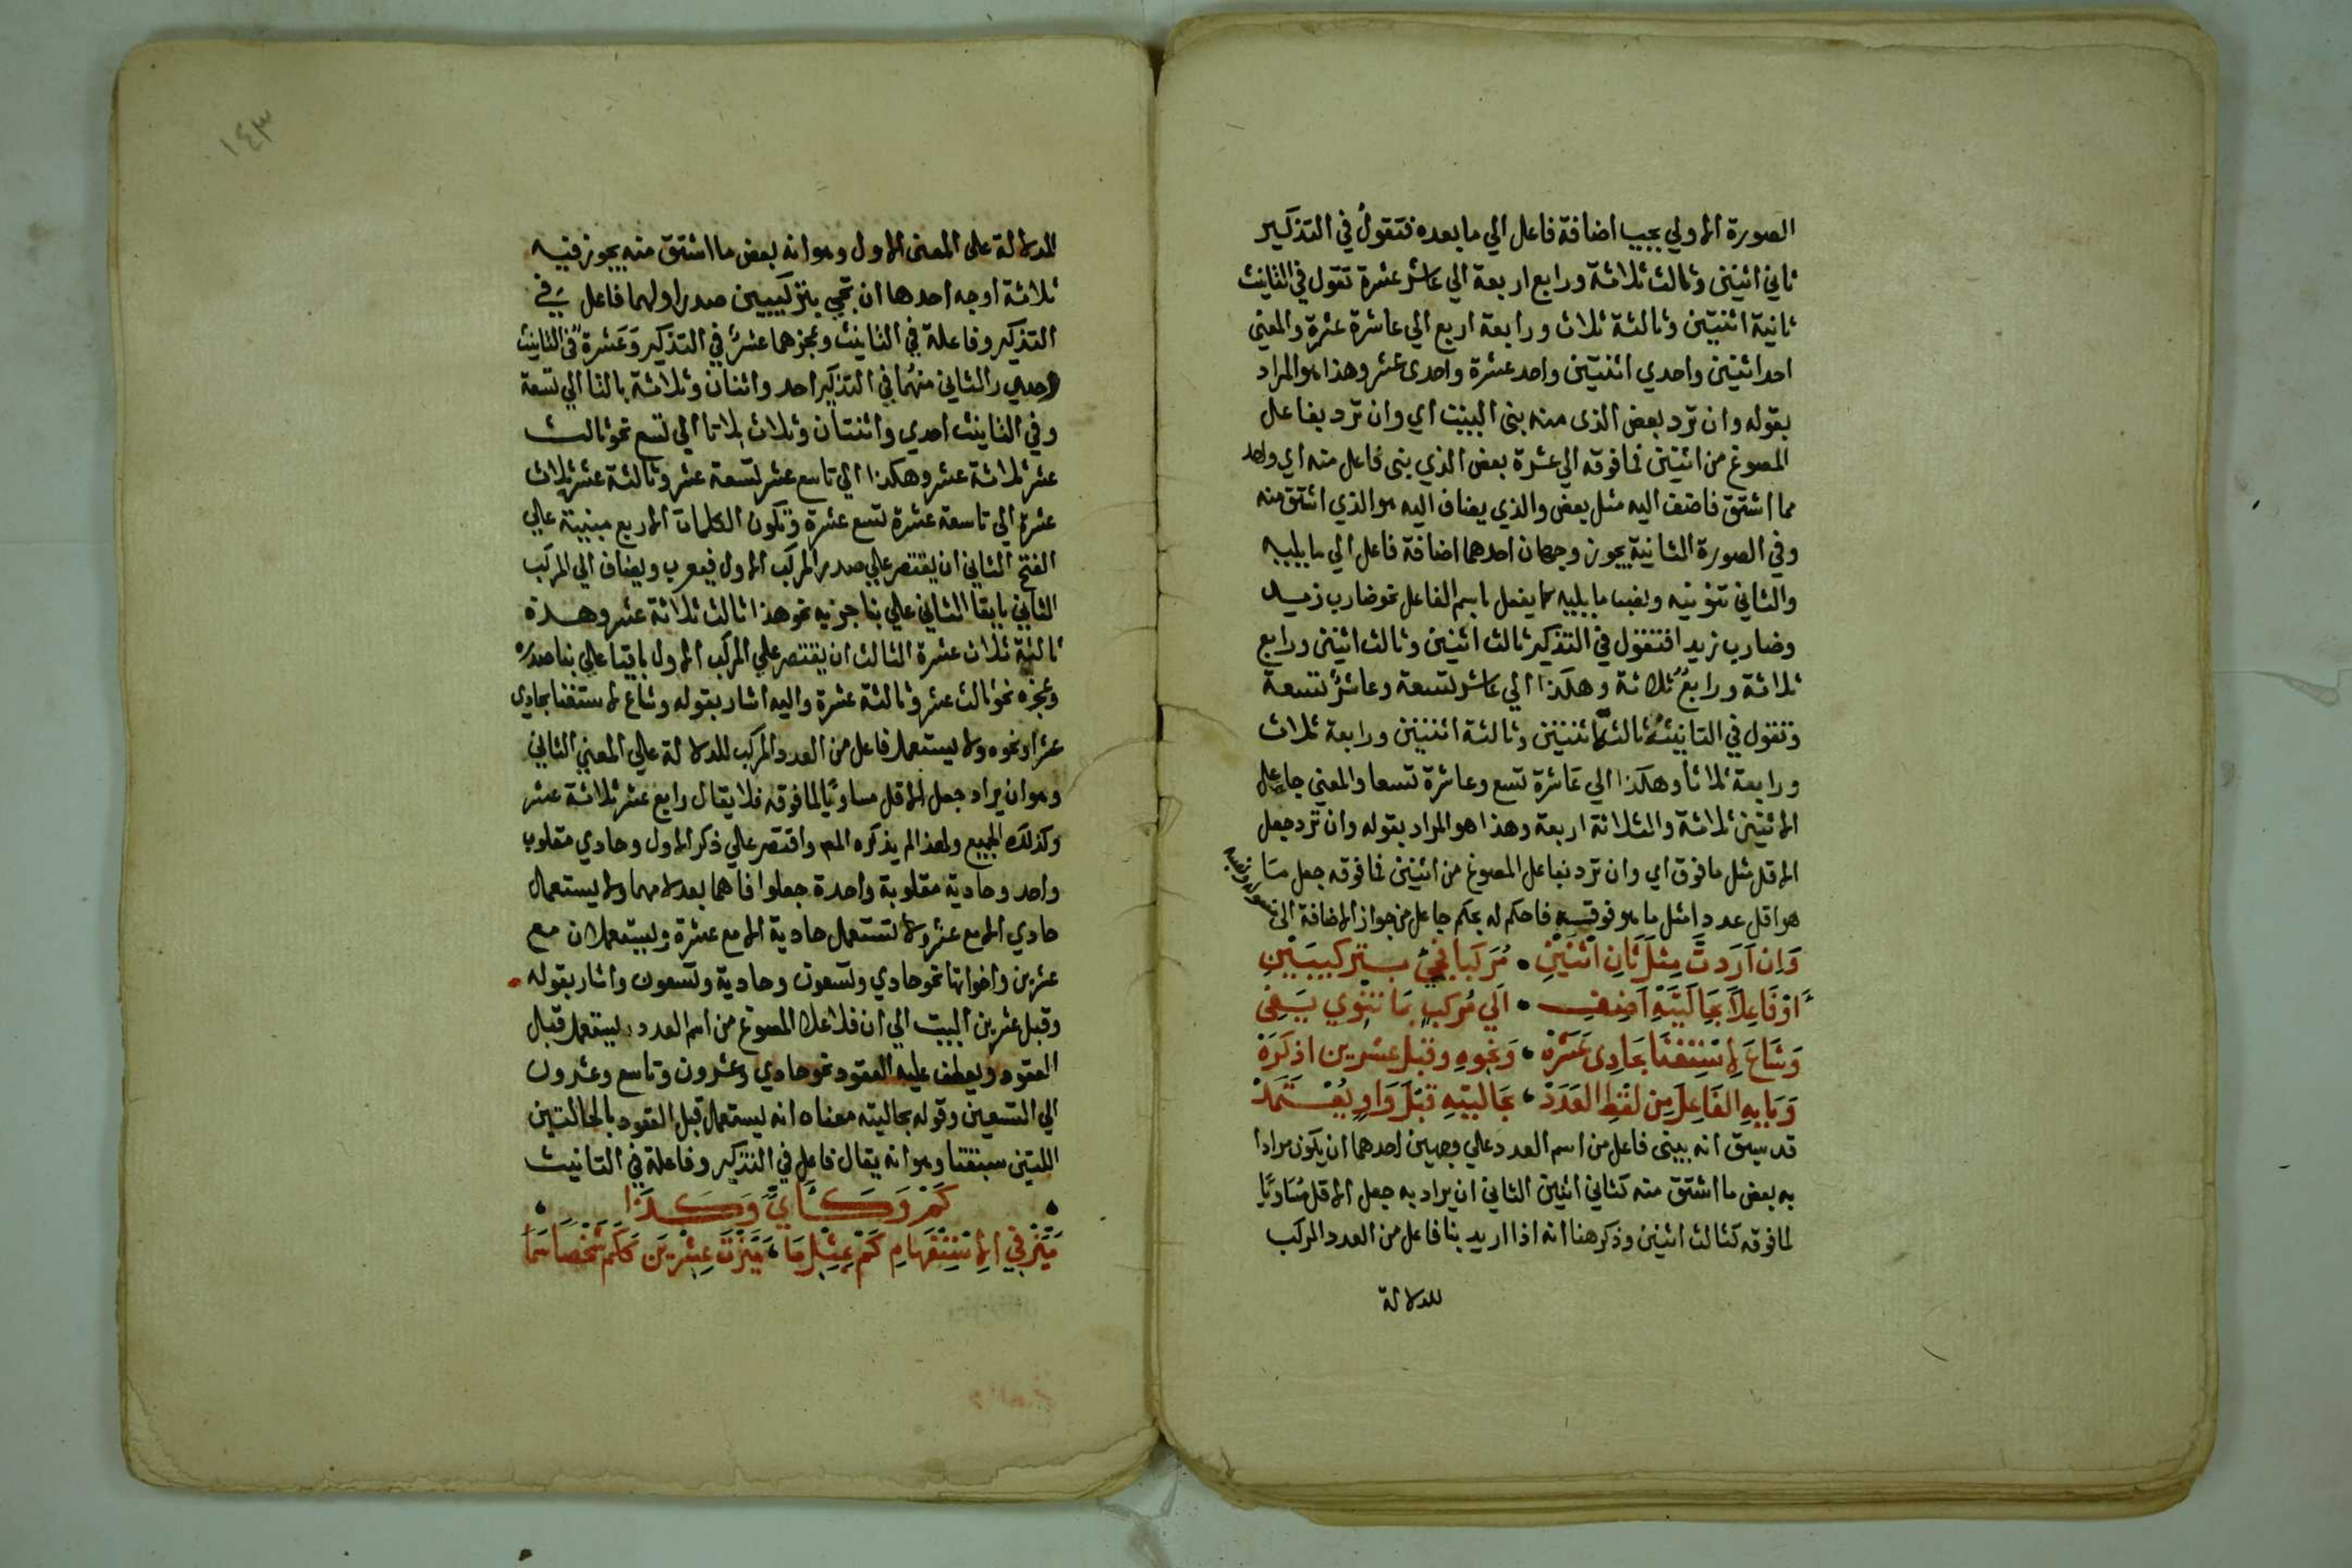 الصورة الاولي يجب اضافة فاعل الي ما بعده فتقول في التذكير
ثاني اثنين وثالث ثلاثة ورابع اربعة الي عاشر عشرة تقول في التانيث
ثانية اثنتين وثالثة ثلاث ورابعة اربع الي عاشرة عشرة والمعني
احد اثنين واحدي اثنتين واحد عشرة واحدي عشر وهذا هو المراد
بقوله وان ترد بعض الذي منه بني البيت اي وان ترد بفاعل
المصوغ من اثنين فما فوقه الي عشرة بعض الذي بني فاعل منه اي واحد
مما اشتق فاضف اليه مثل بعض والذي يضاف اليه هو الذي اشتق منه
وفي الصورة الثانية يجوز وجهان احدهما اضافة فاعل الي ما يليه
والثاني تنوينه ونصب ما يليه كما يفعل باسم الفاعل نحو ضارب زيد
وضارب زيدا فتقول في التذكير ثالث اثنين وثالث اثنين ورابع
ثلاثة ورابع ثلاثة وهكذا الي عاشر تسعة وعاشر تسعة
وتقول في التانيث ثالثة اثنتين وثالثة اثنتين ورابعة ثلاث
ورابعة ثلاثا وهكذا الي عاشرة تسع وعاشرة تسعا والمعني جاعل
الاثنين ثلاثة والثلاثة اربعة وهذا هو المراد بقوله وان ترد جعل
الاقل مثل ما فوق اي وان ترد بفاعل المصوغ من اثنين فما فوقه جعل ما
هو اقل عددا مثل ما هو فوقه فاحكم له بحكم جاعل من جواز الاضافة الي
وَاِن اَرَدتَّ مِثلَ ثَانِ اثْنَيْنِ • مُرَكَّبًا فجِئ بِتركيبَيْنِ
اَوْ فَاعِلًا بِحَالَتَيْهِ اَضِفِ • اِلي مُركبٍ بمَا تنْوي يَفِي
وَشَاعَ الاِسْتِغْنَا بحَادِي عَشَرْ • وَنحْوِهِ وقبْلَ عشرين اذكرَ
وَبَابِهِ الفَاعِلَ مِن لفْظِ العَدَدْ • بحَالتيْهِ قبْلَ وَاوٍ يُعْتَمَدْ
قد سبق انه يبني فاعل من اسم العدد علي وجهين احدهما ان يكون مرادا
به بعض ما اشتق منه كثاني اثنين الثاني ان يراد به جعل الاقل مساويا
لما فوقه كثالث اثنين وذكر هنا انه اذا اريد بنا فاعل من العدد المركب
للدلالة
١٤٣
للدلالة علي المعني الاول وهو انه بعض ما اشتق منه يجوز فيه
ثلاثة اوجه احدها ان تجي بتركيبين صدر اولهما فاعل في
التذكير وفاعلة في التانيث وعجزهما عشر في التذكير وعشرة في التانيث
وصدر الثاني منهما في التذكير احد واثنان وثلاثة بالتا الي تسعة
وفي التانيث احدي واثنتان وثلاث بلا تا الي تسع نحو ثالث
عشر ثلاثة عشر وهكذا الي تاسع عشر تسعة عشر وثالثة عشر ثلاث
عشرة الي تاسعة عشرة تسع عشرة وتكون الكلمات الاربع مبنية علي
الفتح الثاني ان يقتصر علي صدر المركب الاول فيعرب ويضاف الي المركب
الثاني بابقا الثاني علي بنا جزيه نحو هذا ثالث ثلاثة عشر وهذه
ثالثة ثلاث عشرة الثالث ان يقتصر علي المركب الاول باقيا علي بنا صدره
وعجزه نحو ثالث عشر وثالثة عشرة واليه اشار بقوله وشاع الاستغنا بحادي
عشر اونحوه ولا يستعمل فاعل من العدد المركب للدلالة علي المعني الثاني
وهو ان يراد جعل الاقل مساويا لما فوقه فلا يقال رابع عشر ثلاثة عشر
وكذلك الجميع ولهذا لم يذكره المص واقتصر علي ذكر الاول وحادي مقلوب
واحد وحادية مقلوبة واحدة جعلوا فاهما بعد لامهما ولا يستعمل
حادي الا مع عشر ولا تستعمل حادية الا مع عشرة ويستعملان مع
عشرين واخواتها نحو حادي وتسعون وحادية وتسعون واشار بقوله
وقبل عشرين البيت الي ان فاعلا المصوغ من اسم العدد يستعمل قبل
العقود ويعطف عليه العقود نحو حادي وعشرون وتاسع وعشرون
الي التسعين وقوله بحالتيه معناه انه يستعمل قبل العقود بالحالتين
اللتين سبقتا وهو انه يقال فاعل في التذكير وفاعلة في التانيث
كَمْ وَكَاَيٍّ وَكَذَا
مَيِّزْ في الاِسْتِفْهَامِ كَمْ بِمِثْلِ مَا • مَيَّزْتَ عِشْرِينَ كَكَمْ شَخْصًا سَمَا